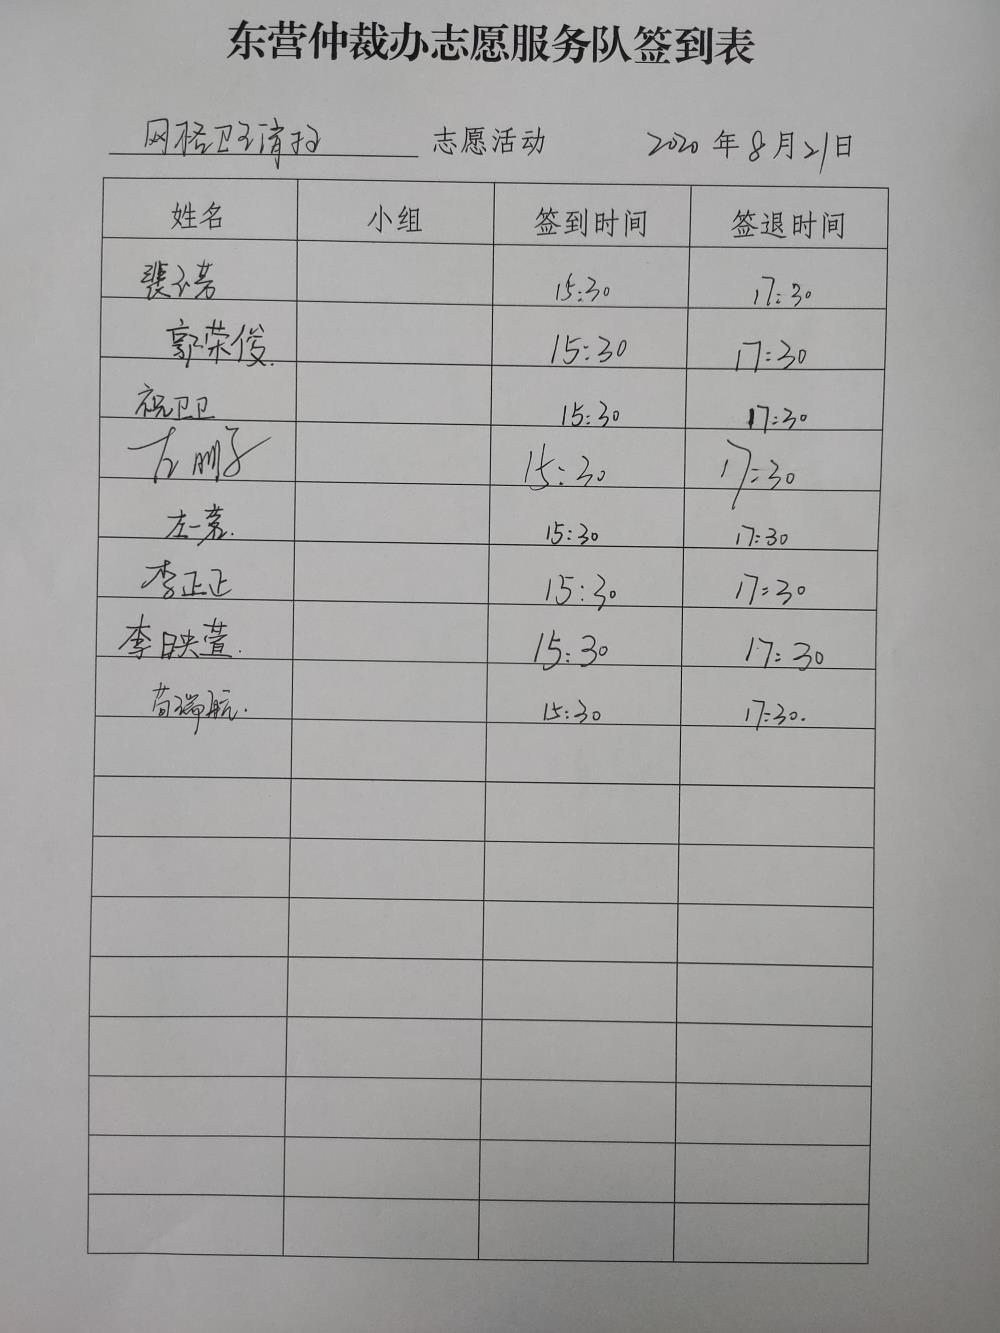 东营仲裁办志愿服务队签到表
网格卫生清扫 志愿活动 2020年8月21日
姓名 小组 签到时间 签退时间
裴玉芳 15:30 17:30
郭荣俊. 15:30 17:30
祝卫卫 15:30 17:30
左朋子 15:30 17:30
左一茗. 15:30 17:30
李正正 15:30 17:30
李映萱. 15:30 17:30
苟瑞航. 15:30 17:30.